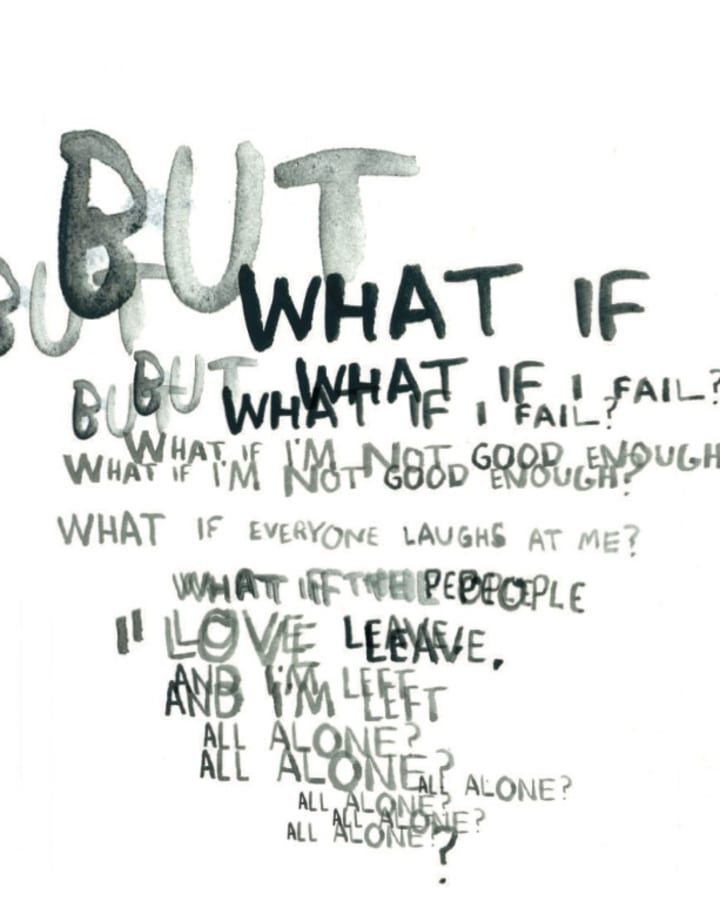 BUT
BUT
WHAT IF
BUT WHAT IF I FAIL?
BUT WHAT IF I FAIL?
WHAT IF I'M NOT GOOD ENOUGH
WHAT IF I'M NOT GOOD ENOUGH?
WHAT IF EVERYONE LAUGHS AT ME?
WHAT IF THE PEOPLE
I LOVE LEAVE,
AND I'M LEFT
AND I'M LEFT
ALL ALONE?
ALL ALONE?
ALL ALONE?
ALL ALONE?
ALL ALONE?
ALL ALONE?
?